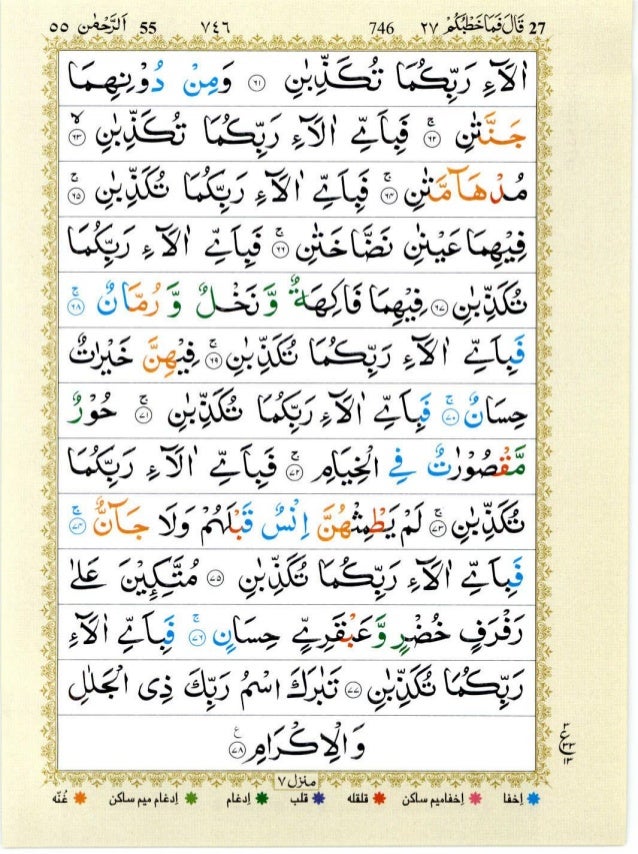 27 قَالَ فَمَا خَطْبُكُمْ ٢٧ 746 ٧٤٦ 55 اَلرَّحْمٰن ٥٥
اٰلَآءِ رَبِّكُمَا تُكَذِّبٰنِ ﴿٦١﴾ وَمِنْ دُوْنِهِمَا
جَنَّتٰنِ ۚ﴿٦٢﴾ فَبِاَيِّ اٰلَآءِ رَبِّكُمَا تُكَذِّبٰنِ ۙ﴿٦٣﴾
مُدْهَآمَّتٰنِ ۚ﴿٦٤﴾ فَبِاَيِّ اٰلَآءِ رَبِّكُمَا تُكَذِّبٰنِ ۚ﴿٦٥﴾
فِيْهِمَا عَيْنٰنِ نَضَّاخَتٰنِ ۚ﴿٦٦﴾ فَبِاَيِّ اٰلَآءِ رَبِّكُمَا
تُكَذِّبٰنِ ﴿٦٧﴾ فِيْهِمَا فَاكِهَةٌ وَّ نَخْلٌ وَّ رُمَّانٌ ۚ﴿٦٨﴾
فَبِاَيِّ اٰلَآءِ رَبِّكُمَا تُكَذِّبٰنِ ۚ﴿٦٩﴾ فِيْهِنَّ خَيْرٰتٌ
حِسَانٌ ۚ﴿٧٠﴾ فَبِاَيِّ اٰلَآءِ رَبِّكُمَا تُكَذِّبٰنِ ۚ﴿٧١﴾ حُوْرٌ
مَّقْصُوْرٰتٌ فِي الْخِيَامِ ۚ﴿٧٢﴾ فَبِاَيِّ اٰلَآءِ رَبِّكُمَا
تُكَذِّبٰنِ ۚ﴿٧٣﴾ لَمْ يَطْمِثْهُنَّ اِنْسٌ قَبْلَهُمْ وَلَا جَآنٌّ ۚ﴿٧٤﴾
فَبِاَيِّ اٰلَآءِ رَبِّكُمَا تُكَذِّبٰنِ ﴿٧٥﴾ مُتَّكِـِٕيْنَ عَلٰى
رَفْرَفٍ خُضْرٍ وَّعَبْقَرِيٍّ حِسَانٍ ۚ﴿٧٦﴾ فَبِاَيِّ اٰلَآءِ
رَبِّكُمَا تُكَذِّبٰنِ ﴿٧٧﴾ تَبٰرَكَ اسْمُ رَبِّكَ ذِى الْجَلٰلِ
وَالْاِكْرَامِ ﴿٧٨﴾
ع ٣ ٣٣ ١٣
منزل ٧
اِخفا اِخفامیم ساکن قلقله قلب اِدغام اِدغام میم ساکن غُنّه